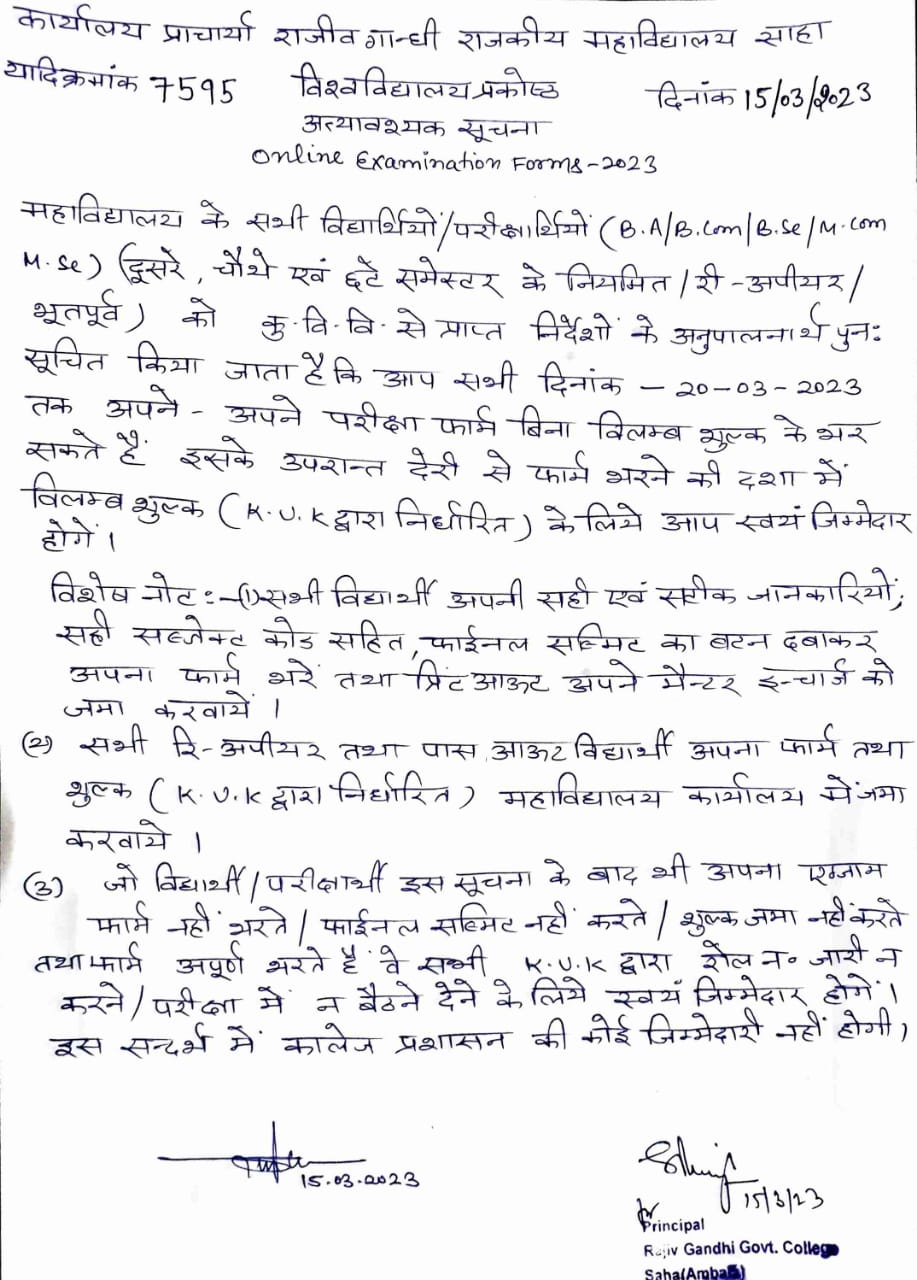 कार्यालय प्राचार्या राजीव गान्धी राजकीय महाविद्यालय साहा
यादिक्रमांक 7595 विश्वविद्यालय प्रकोष्ठ दिनांक 15/03/2023
अत्यावश्यक सूचना
Online Examination Forms-2023
महाविद्यालय के सभी विद्यार्थियों/परीक्षार्थियों (B.A/B.Com/B.Sc/M.Com
M.Sc) (दूसरे, चौथे एवं छटे समेस्टर के नियमित/री-अपीयर/
भूतपूर्व) को कु.वि.वि. से प्राप्त निर्देशों के अनुपालनार्थ पुनः
सूचित किया जाता है कि आप सभी दिनांक - 20-03-2023
तक अपने - अपने परीक्षा फार्म बिना विलम्ब शुल्क के भर
सकते हैं इसके उपरान्त देरी से फार्म भरने की दशा में
विलम्ब शुल्क (K.U.K द्वारा निर्धारित) के लिये आप स्वयं जिम्मेदार
होगें।
विशेष नोट:-(1) सभी विद्यार्थी अपनी सही एवं सटीक जानकारियों,
सही सब्जेक्ट कोड सहित, फाईनल सब्मिट का बटन दबाकर
अपना फार्म भरें तथा प्रिंट आऊट अपने मैन्टर इन्चार्ज को
जमा करवायें।
(2) सभी रि-अपीयर तथा पास आऊट विद्यार्थी अपना फार्म तथा
शुल्क (K.U.K द्वारा निर्धारित) महाविद्यालय कार्यालय में जमा
करवाये।
(3) जो विद्यार्थी/परीक्षार्थी इस सूचना के बाद भी अपना एग्जाम
फार्म नहीं भरते/फाईनल सब्मिट नहीं करते/शुल्क जमा नहीं करते
तथा फार्म अपूर्ण भरते हैं वे सभी K.U.K द्वारा रोल न० जारी न
करने/परीक्षा में न बैठने देने के लिये स्वयं जिम्मेदार होगें।
इस सन्दर्भ में कालेज प्रशासन की कोई जिम्मेदारी नहीं होगी।
15.03.2023
15/3/23
Principal
Rajiv Gandhi Govt. College
Saha(Ambala)